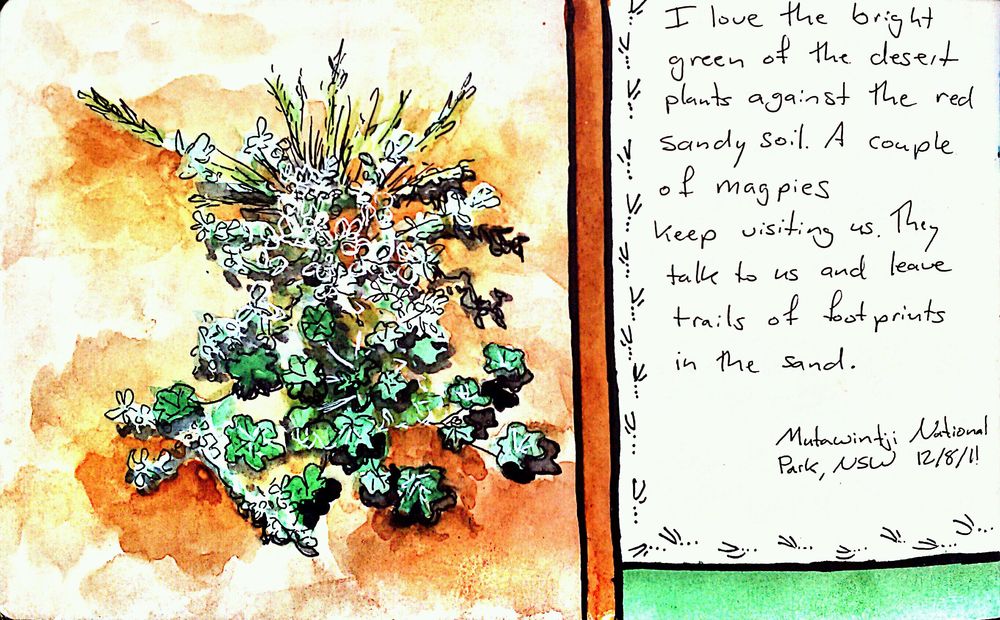 I love the bright
green of the desert
plants against the red
sandy soil. A couple
of magpies
keep visiting us. They
talk to us and leave
trails of footprints
in the sand.
Mutawintji National
Park, NSW 12/8/11